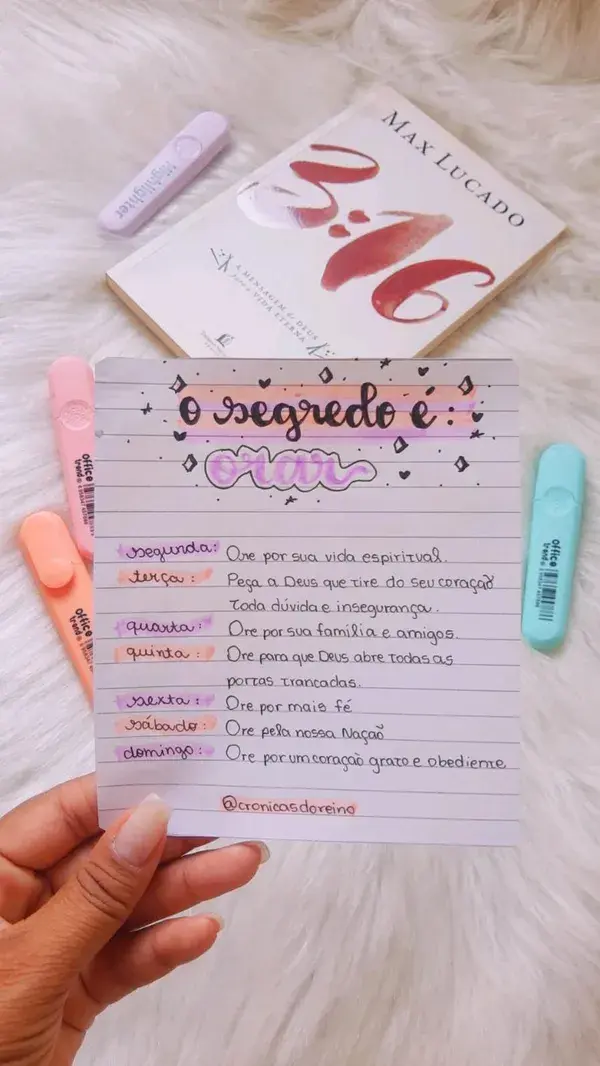 Highlighter
MAX LUCADO
3:16
A MENSAGEM de DEUS
para a VIDA ETERNA
o segredo é:
orar
segunda: Ore por sua vida espiritual.
terça: Peça a Deus que tire do seu coração
toda dúvida e insegurança.
quarta: Ore por sua familia e amigos.
quinta: Ore para que Deus abre todas as
portas trancadas.
sexta: Ore por mais fé
sábado: Ore pela nossa Nação
domingo: Ore por um coração grato e obediente
@cronicasdoreino
office
trend
office
trend
office
trend